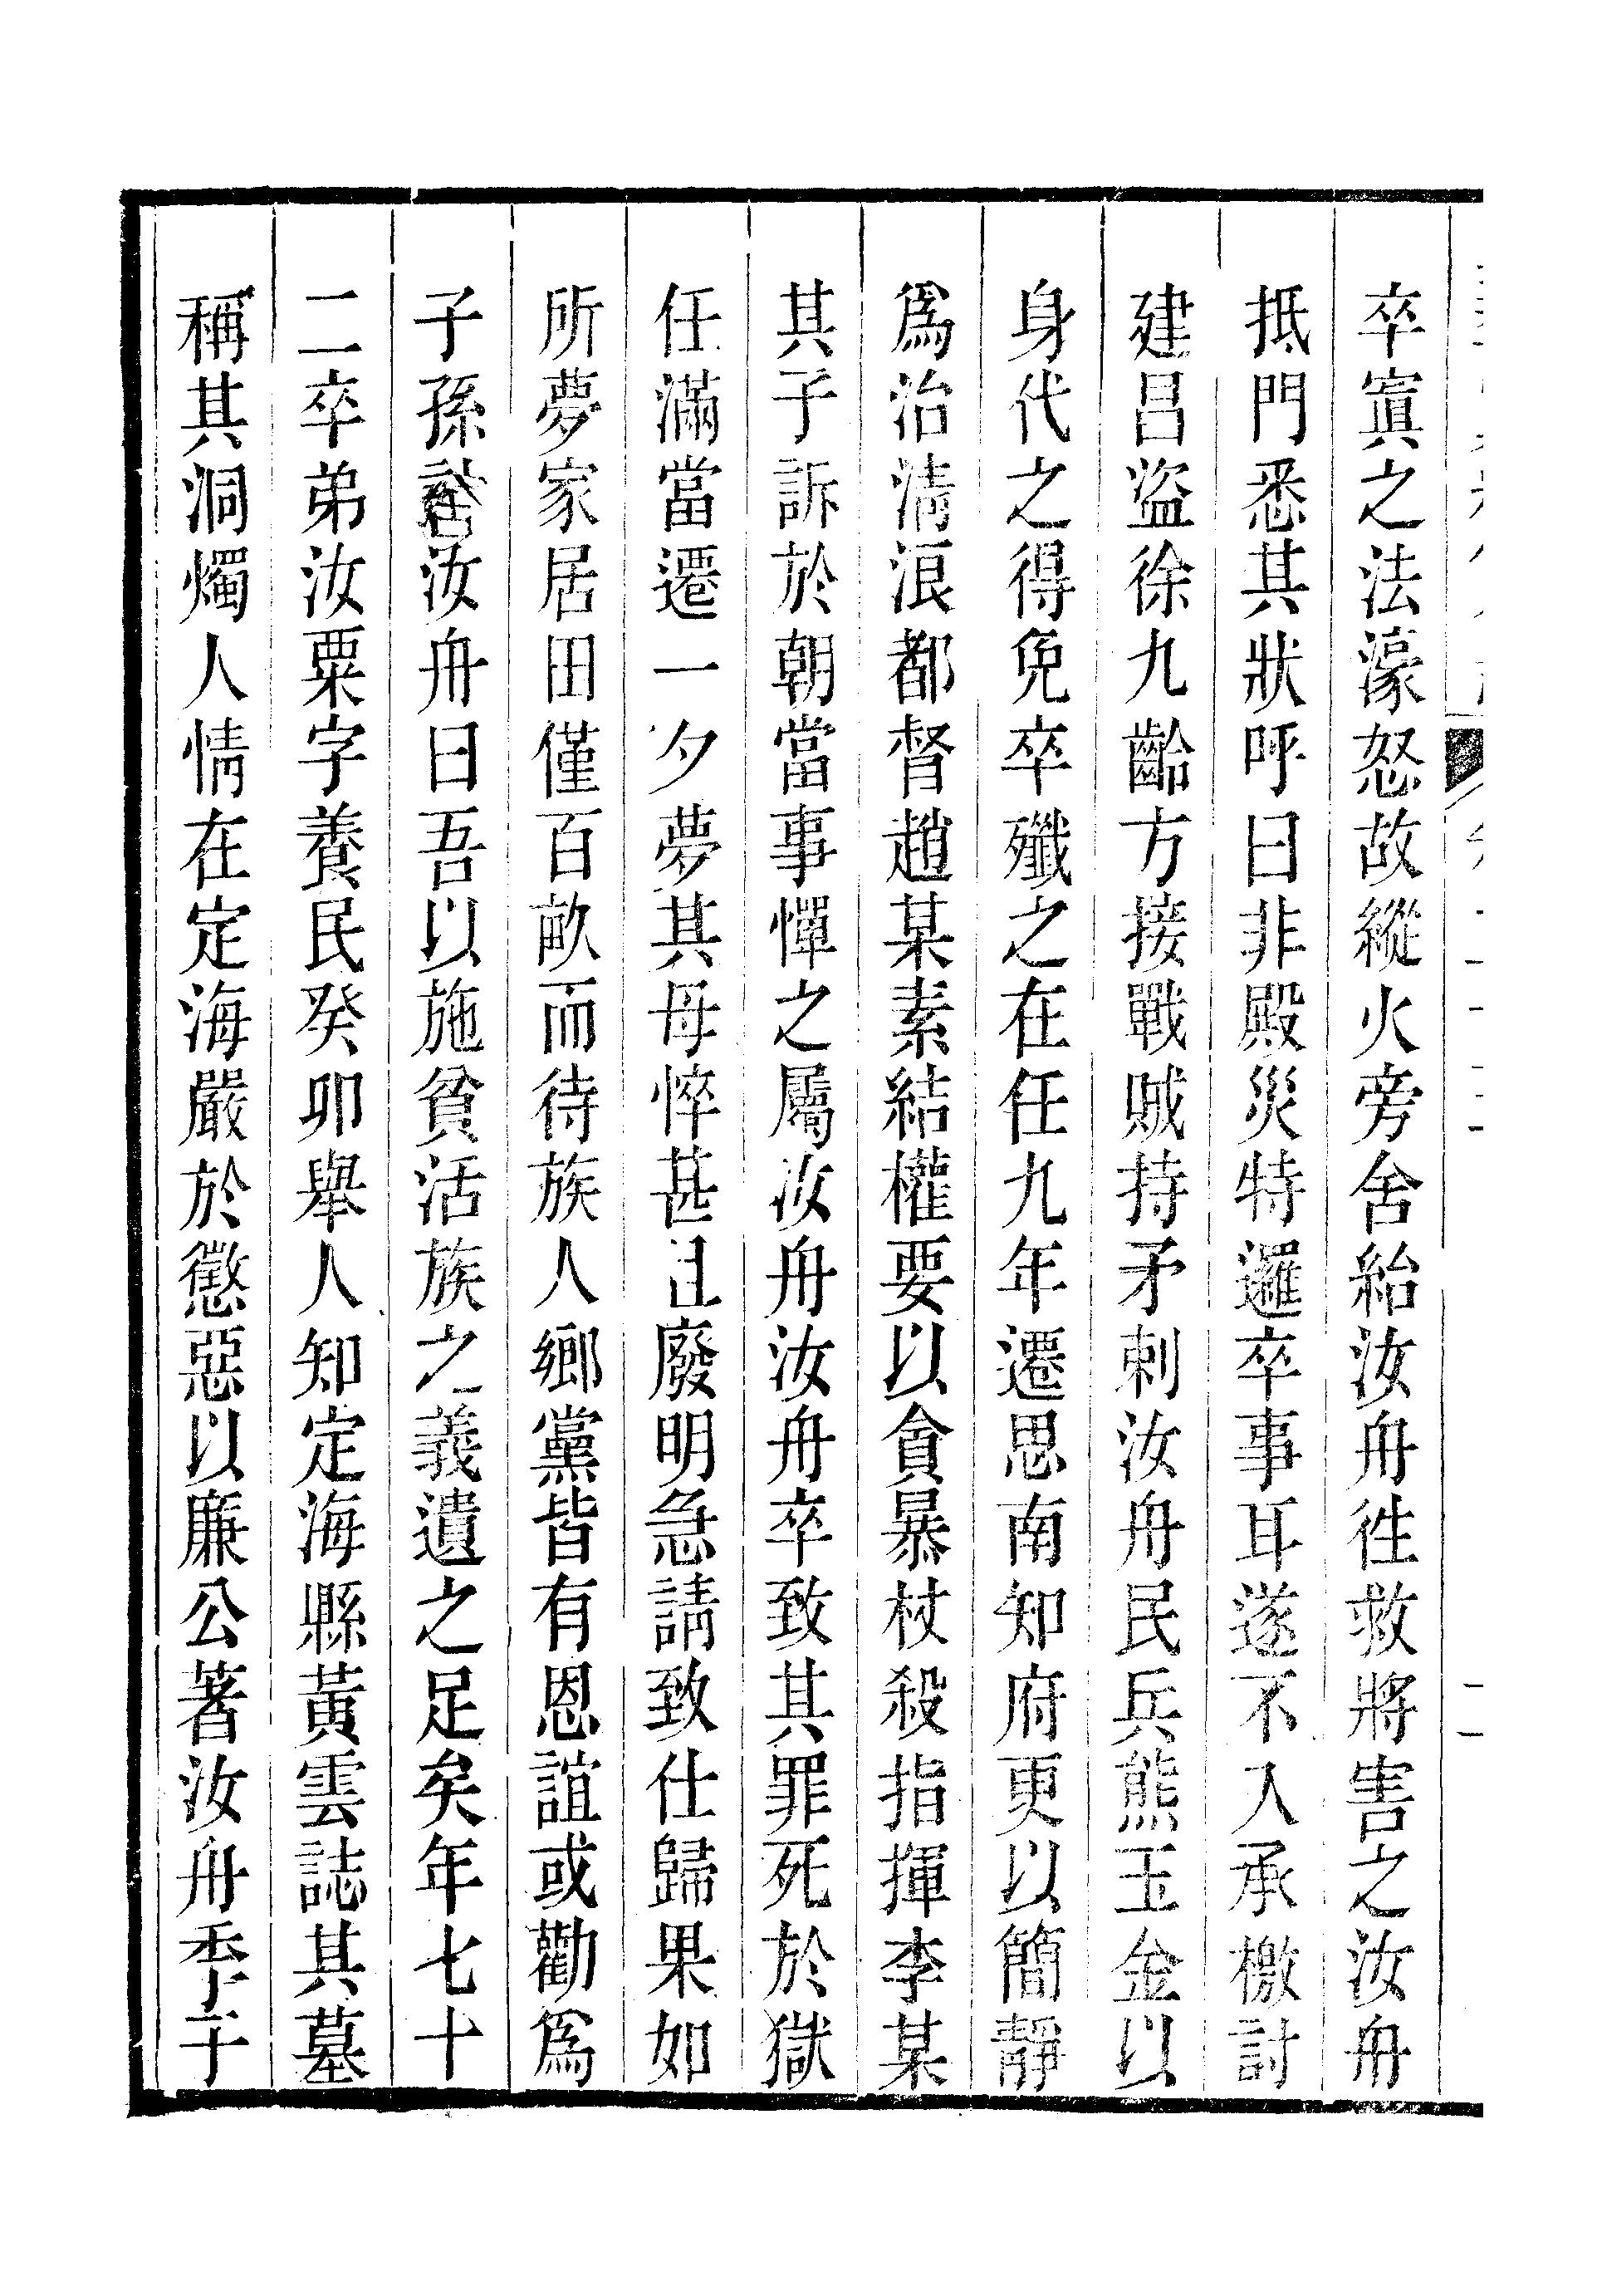 卒寘之法濠怒故縱火旁舍紿汝舟徃救將害之汝舟
抵門悉其狀呼曰非殿災特邏卒事耳遂不入承檄討
建昌盜徐九齡方接戰賊持矛刺汝舟民兵熊玉金以
身代之得免卒殲之在任九年遷思南知府更以簡靜
爲治清浪都督趙某素結權要以貪暴杖殺指揮李某
其子訴於朝當事憚之屬汝舟汝舟卒致其罪死於獄
任滿當遷一夕夢其母悴甚且廢明急請致仕歸果如
所夢家居田僅百畝而待族人鄉黨皆有恩誼或勸爲
子孫計汝舟曰吾以施貧活族之義遺之足矣年七十
二卒弟汝粟字養民癸卯舉人知定海縣黃雲誌其墓
稱其洞燭人情在定海嚴於懲惡以廉公著汝舟季子